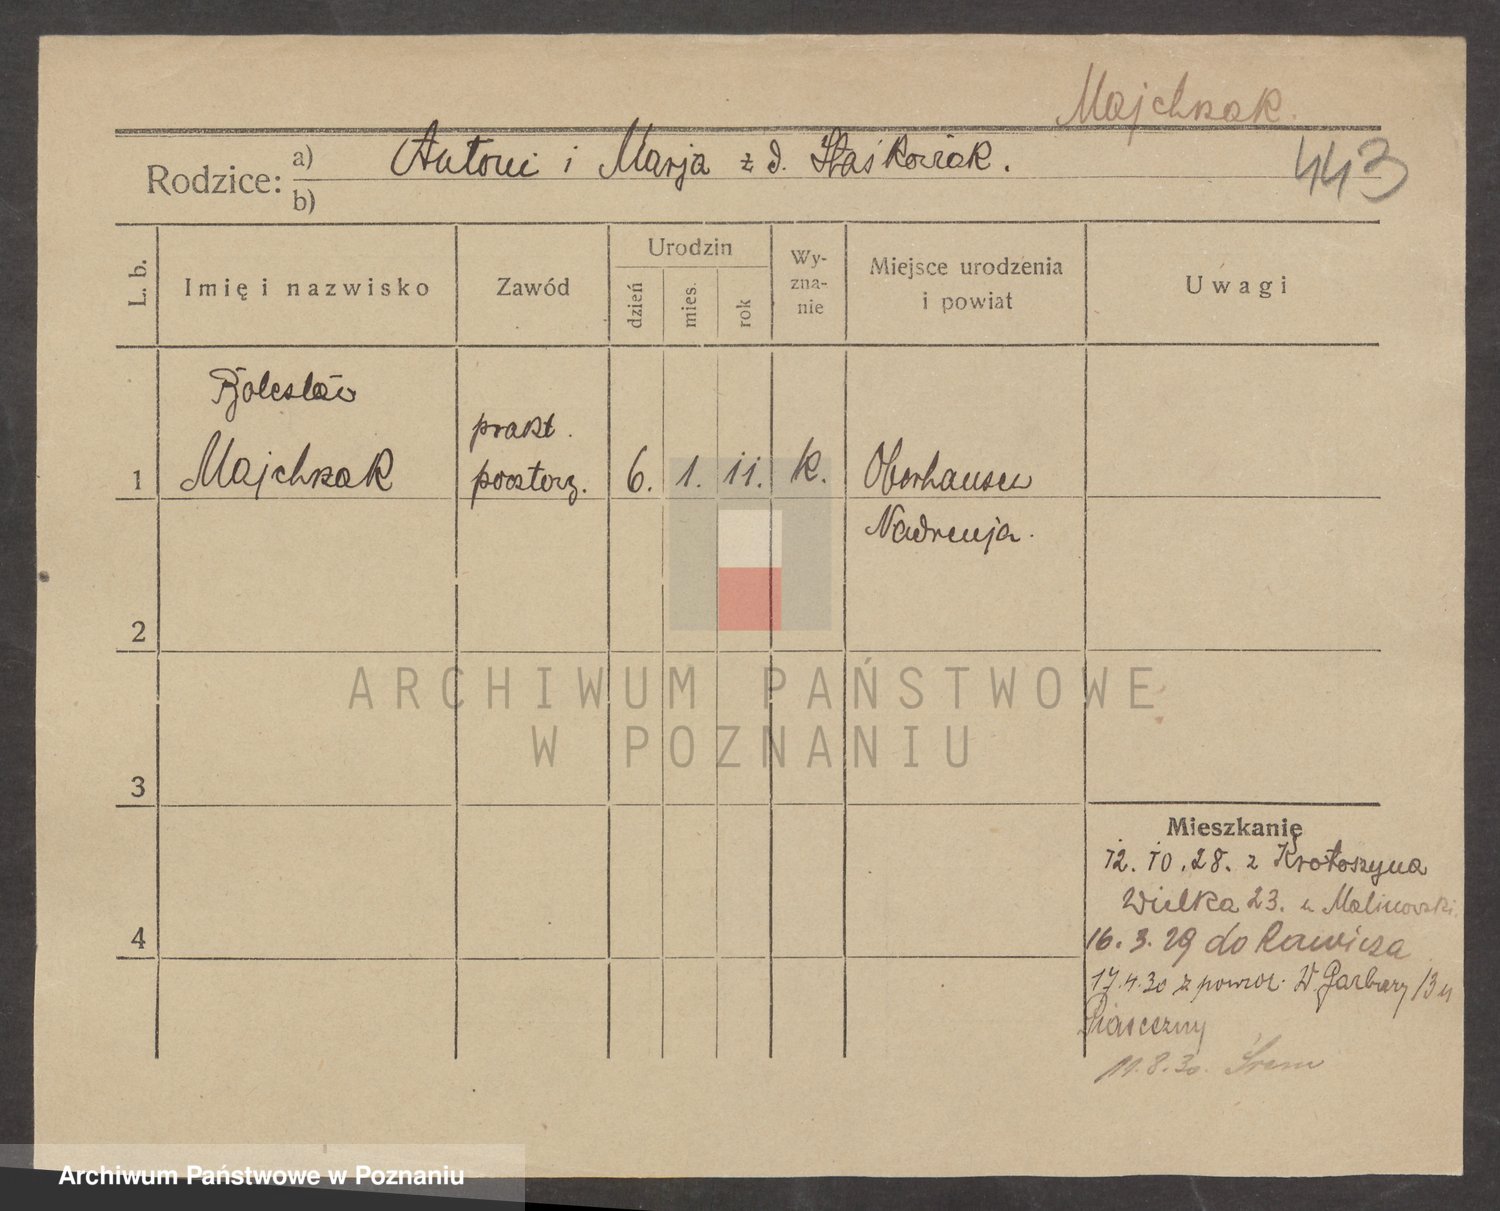 Majchrzak.
443
Rodzice: a) Antoni i Marja z d. Staśkowiak.
b)
L. b.
Imię i nazwisko
Zawód
Urodzin
dzień
mies.
rok
Wy-
zna-
nie
Miejsce urodzenia
i powiat
Uwagi
Bolesław
prakt.
1 Majchrzak 6. 1. 11. k. Oberhausen
Nadrenja.
2
ARCHIWUM PAŃSTWOWE
W POZNANIU
3
Mieszkanie
12. 10. 28. z Krotoszyna
Wielka 23. u Malinowski.
4
16. 3. 29 do Rawicza
17.4.30 z powrot. W. Garbary 13 u
Piaseczny
11.8.30. Śrem
Archiwum Państwowe w Poznaniu